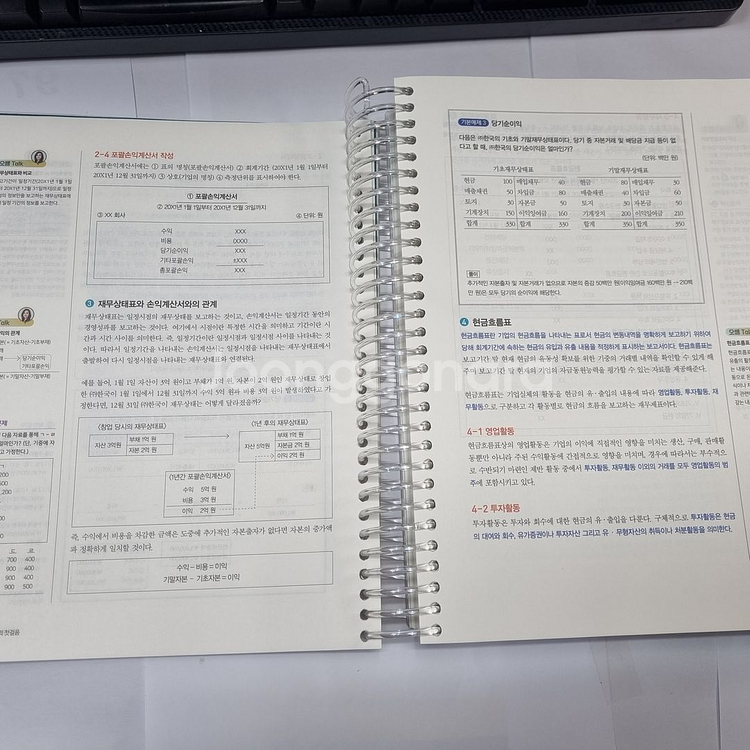 오쌤 Talk
2-4 포괄손익계산서 작성
포괄손익계산서에는 ① 표의 명칭(포괄손익계산서) ② 회계기간 (20X1년 1월 1일부터
20X1년 12월 31일까지) ③ 상호(기업의 명칭) ④ 측정단위를 표시하여야 한다.
① 포괄손익계산서
② 20X1년 1월 1일부터 20X1년 12월 31일까지
③ XX 회사
④ 단위: 원
수익 XXX
비용 (XXX)
당기순이익 XXX
기타포괄손익 ±XXX
총포괄손익 XXX
3 재무상태표와 손익계산서와의 관계
재무상태표는 일정시점의 재무상태를 보고하는 것이고, 손익계산서는 일정기간 동안의
경영성과를 보고하는 것이다. 여기에서 시점이란 특정한 시간을 의미하고 기간이란 시
간과 시간 사이를 의미한다. 즉, 일정기간이란 일정시점과 일정시점 사이를 나타내는 것
이다. 따라서 일정기간을 나타내는 손익계산서는 일정시점을 나타내는 재무상태표에서
출발하여 다시 일정시점을 나타내는 재무상태표와 연결된다.
예를 들어, 1월 1일 자산이 3억 원이고 부채가 1억 원, 자본이 2억 원인 재무상태로 창업
한 ㈜한국이 1월 1일에서 12월 31일까지 수익 5억 원과 비용 3억 원이 발생하였다고 가
정한다면, 12월 31일 ㈜한국의 재무상태는 어떻게 달라졌을까?
〈창업 당시의 재무상태표〉
〈1년 후의 재무상태표〉
자산 3억원
부채 1억 원
자본 2억 원
자산 5억원
부채 1억 원
자본금 2억 원
이익 2억 원
〈1년간 포괄손익계산서〉
수익 5억 원
비용 3억 원
이익 2억 원
즉, 수익에서 비용을 차감한 금액은 도중에 추가적인 자본출자가 없다면 자본의 증가액
과 정확하게 일치할 것이다.
수익 - 비용 = 이익
기말자본 - 기초자본 = 이익
기본예제 3 당기순이익
다음은 ㈜한국의 기초와 기말재무상태표이다. 당기 중 자본거래 및 배당금 지급 등이 없
다고 할 때, ㈜한국의 당기순이익은 얼마인가?
(단위: 백만 원)
기초재무상태표
기말재무상태표
현금 100 매입채무 40 현금 80 매입채무 50
매출채권 50 차입금 80 매출채권 40 차입금 60
토지 30 자본금 50 토지 30 자본금 50
기계장치 150 이익잉여금 160 기계장치 200 이익잉여금 210
합계 330 합계 330 합계 350 합계 350
풀이
추가적인 자본출자 및 자본거래가 없으므로 자본의 증감 50백만 원(이익잉여금 160백만 원 → 210백
만 원)은 모두 당기의 순이익에 해당한다.
4 현금흐름표
현금흐름표란 기업의 현금흐름을 나타내는 표로서 현금의 변동내역을 명확하게 보고하기 위하여
당해 회계기간에 속하는 현금의 유입과 유출 내용을 적정하게 표시하는 보고서이다. 현금흐름표는
보고기간 말 현재 현금의 유동성 확보를 위한 기중의 거래별 내역을 확인할 수 있게 해
주며 보고기간 말 현재의 기업의 자금동원능력을 평가할 수 있는 자료를 제공해준다.
현금흐름표는 기업실체의 현금흐름을 현금의 유·출입의 내용에 따라 영업활동, 투자활동, 재
무활동으로 구분하고 각 활동별로 현금의 흐름을 보고하는 재무제표이다.
4-1 영업활동
현금흐름표상의 영업활동은 기업의 이익에 직접적인 영향을 미치는 생산, 구매, 판매활
동뿐만 아니라 주된 수익활동에 간접적으로 영향을 미치며, 경우에 따라서는 부수적으
로 수반되기 마련인 제반 활동 중에서 투자활동, 재무활동 이외의 거래를 모두 영업활동의 범
주에 포함시키고 있다.
4-2 투자활동
투자활동은 투자와 회수에 대한 현금의 유·출입을 다룬다. 구체적으로 투자활동은 현금
의 대여와 회수, 유가증권이나 투자자산 그리고 유·무형자산의 취득이나 처분활동을 의미한다.